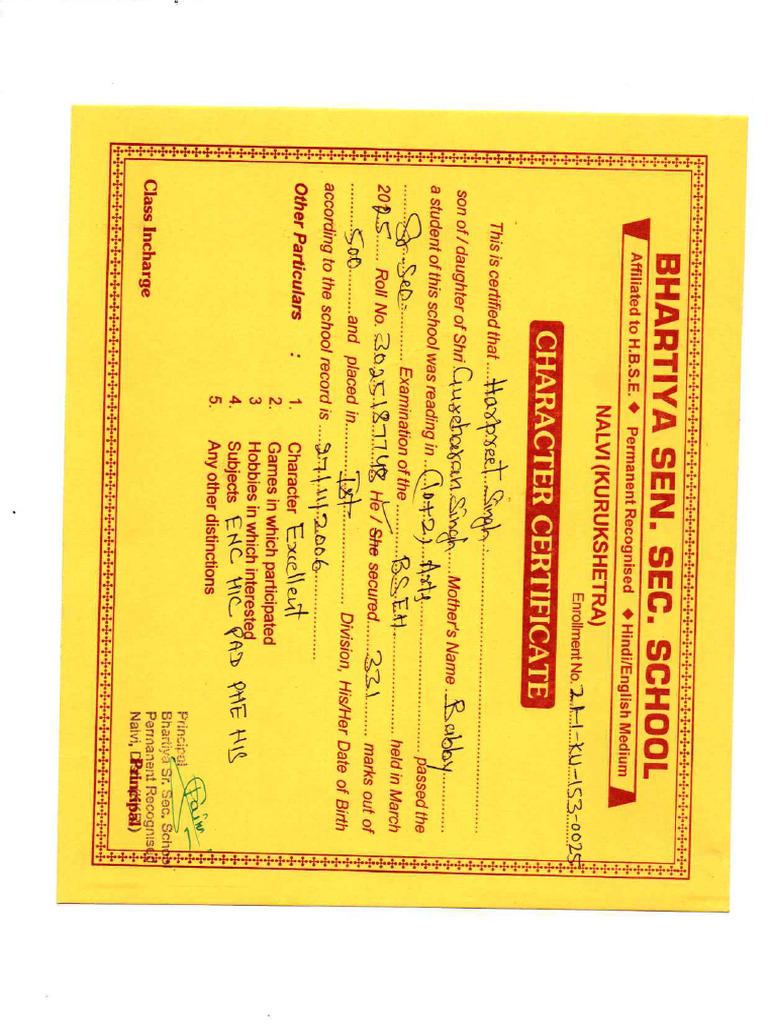 BHARTIYA SEN. SEC. SCHOOL
Affiliated to H.B.S.E. ◆ Permanent Recognised ◆ Hindi/English Medium
NALVI (KURUKSHETRA)
Enrollment No. 21-1-KU-153-0025
CHARACTER CERTIFICATE
This is certified that Harpreet Singh
son of / daughter of Shri Gurcharan Singh Mother's Name Babby
a student of this school was reading in (10+2) Arts passed the
Sr. Sec. Examination of the B.S.E.H. held in March
2025 Roll No. 3025187748 He / She secured 331 marks out of
500 and placed in Ist Division, His/Her Date of Birth
according to the school record is 27/11/2006
Other Particulars : 1. Character Excellent
2. Games in which participated
3 Hobbies in which interested
4. Subjects ENC HIC PAD PHE HIS
5. Any other distinctions
Class Incharge
Principal
Principal
Bhartiya Sr. Sec. School
Permanent Recognised
Nalvi,